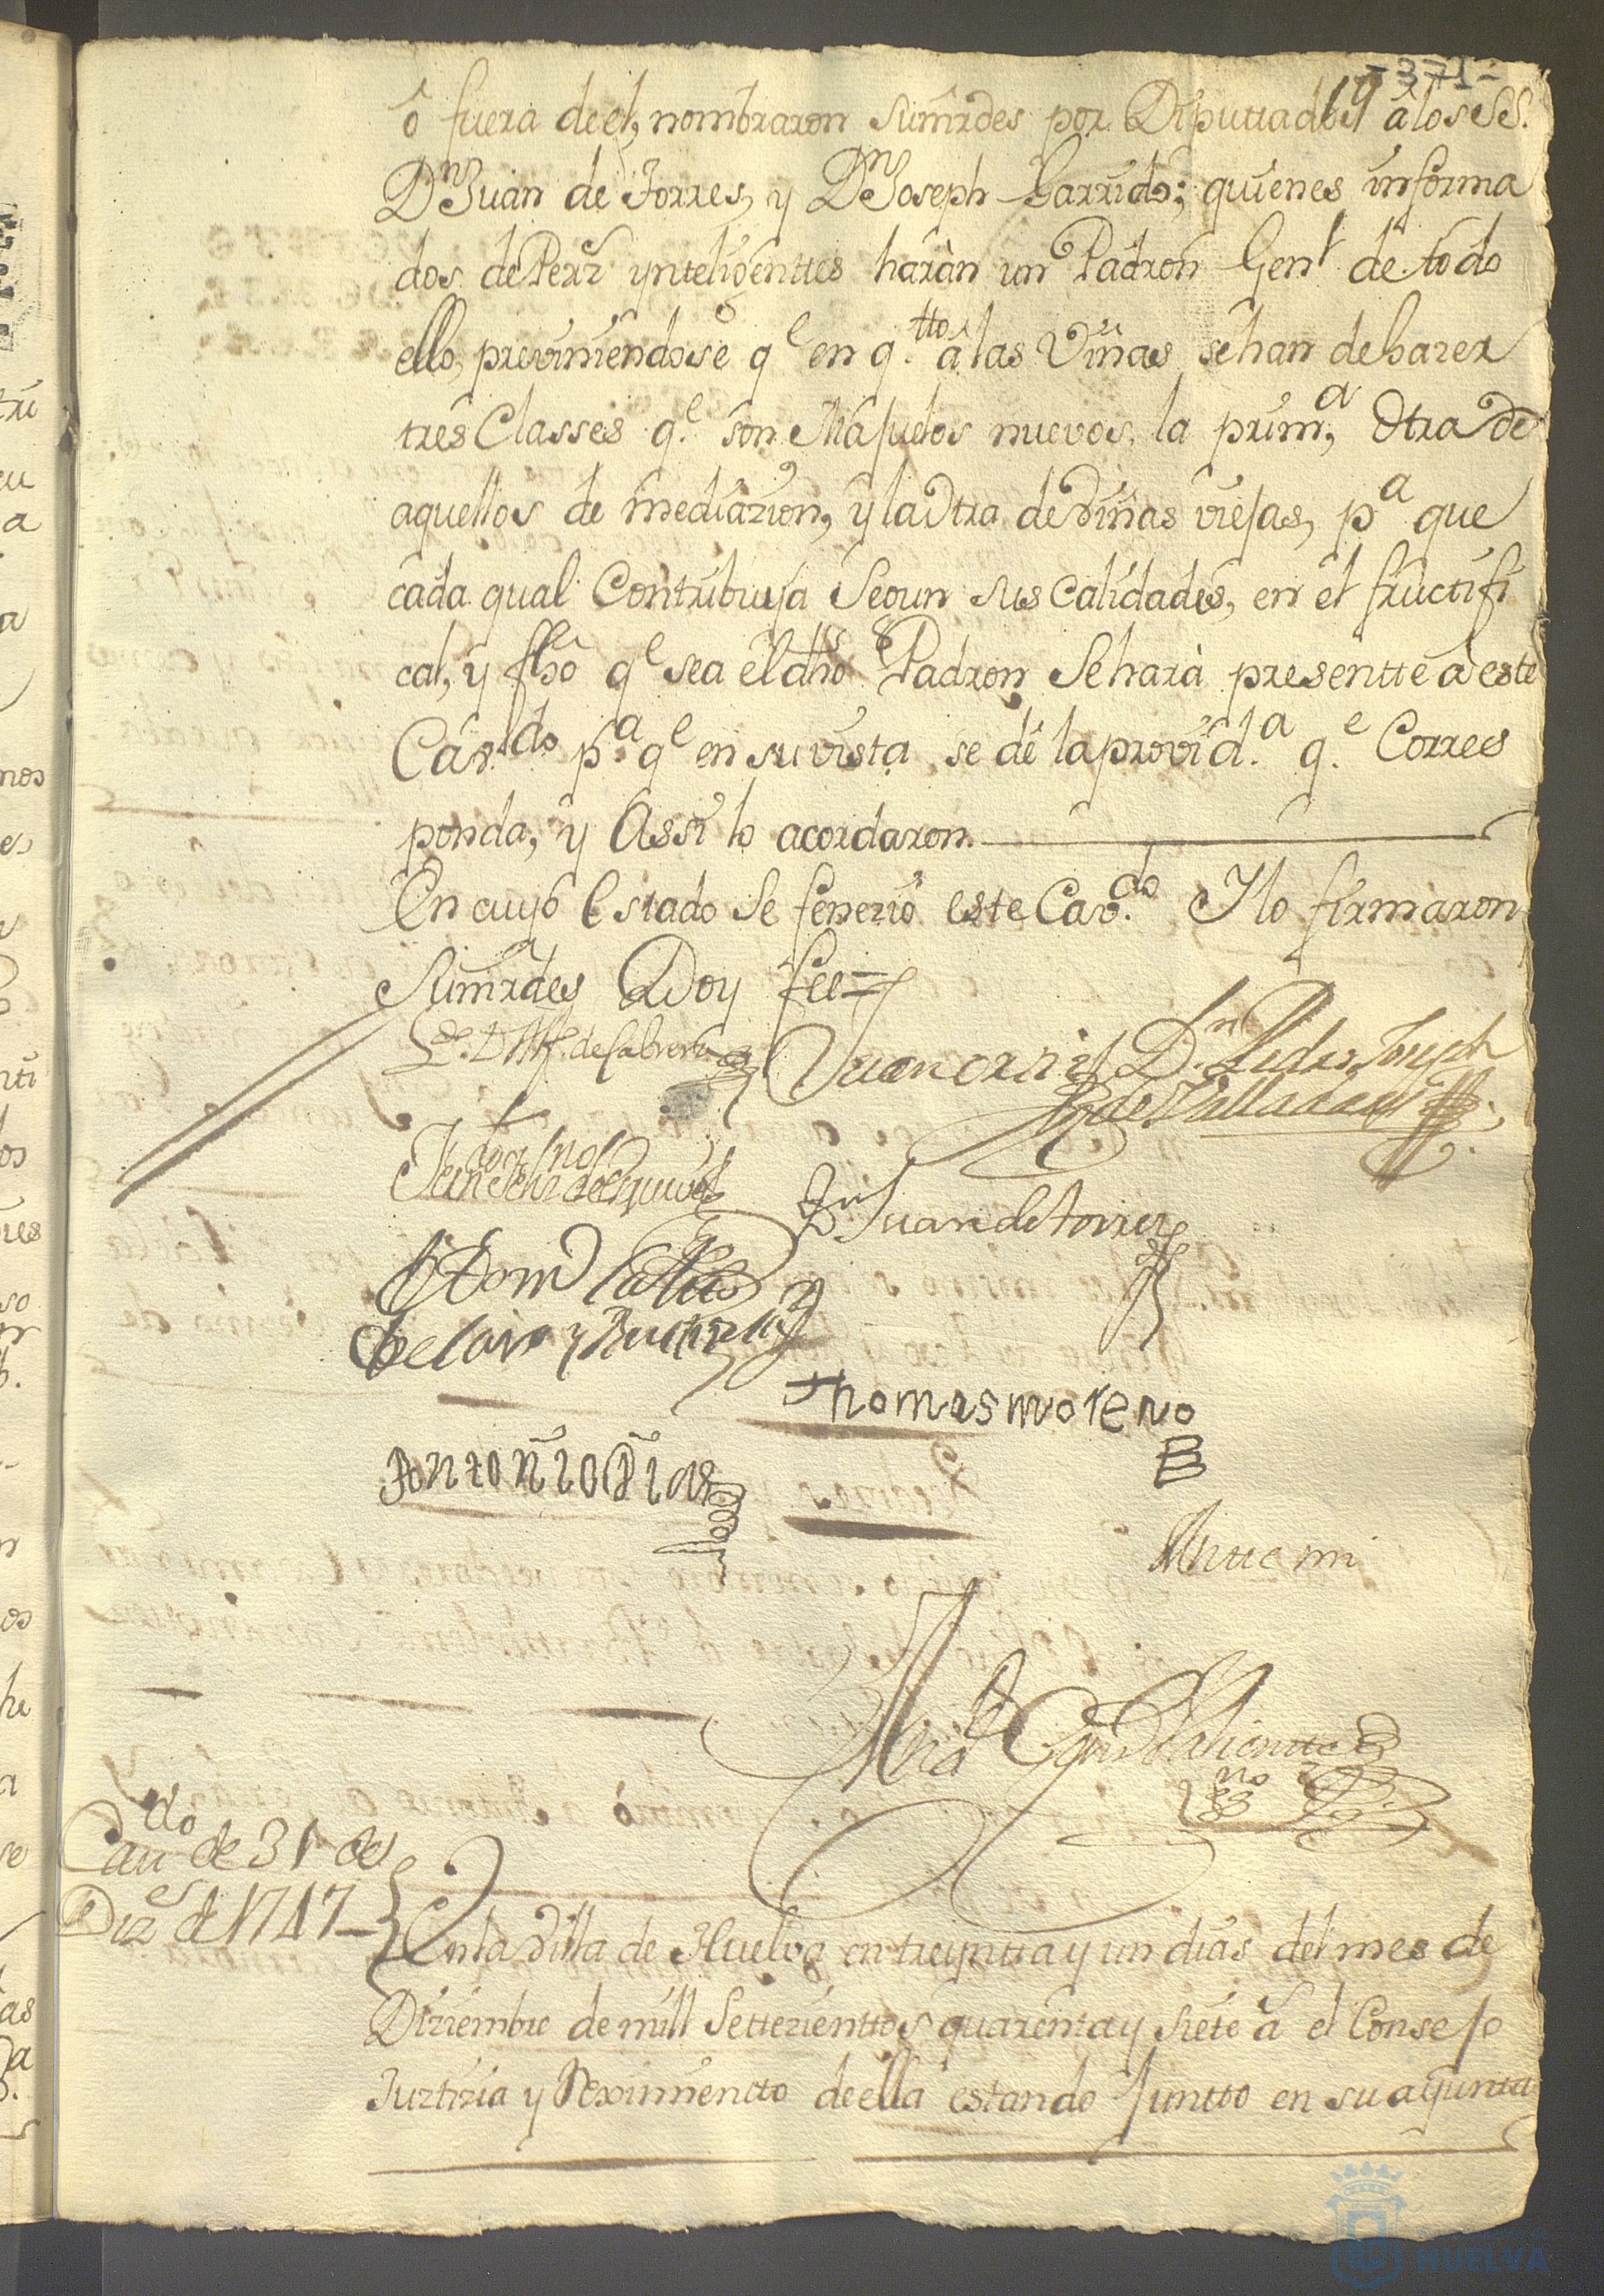 -371-
19
ô fuera de el, nombraron Sumrdes por Diputtados â los SSS.
Dn Juan de Torres, y Dn Joseph Garrido; quienes informa
dos de Perss ynteligenttes haràn un Padron Genl de todo
ello, previniendose qe en q.tto â las Viñas se han de hazer
tres Classes q.e son Majuelos nuevos, la prim.a, Otra de
aquellos de mediazion, y la Otra de Viñas viejas, p.a que
cada qual Contribuya Segun sus calidades, en el fructifi
cal, y fho qe sea el dho Padron Se harà presentte â este
Cav.do p.a qe en su vista se dê la provid.a q.e Corres
ponda, y Assi lo acordaron.
En cuyo Estado Se fenezio este Cav.do Y lo firmaron
Sumrdes Doy fee=
de Cabrera
Juan ortiz
D.n Pedro Joseph
de Valladares
Dn Juan de torres
Thomas moreno
Antoñio Dias
Antte mi
Cavdo de 31 de
Dizre de 1747
En la Villa de Huelva en treynta y un dias del mes de
Diziembre de mill Settezienttos quarenta y siete â el Consejo
Justizia y Reximientto de ella estando Juntto en su ayunta
HUELVA